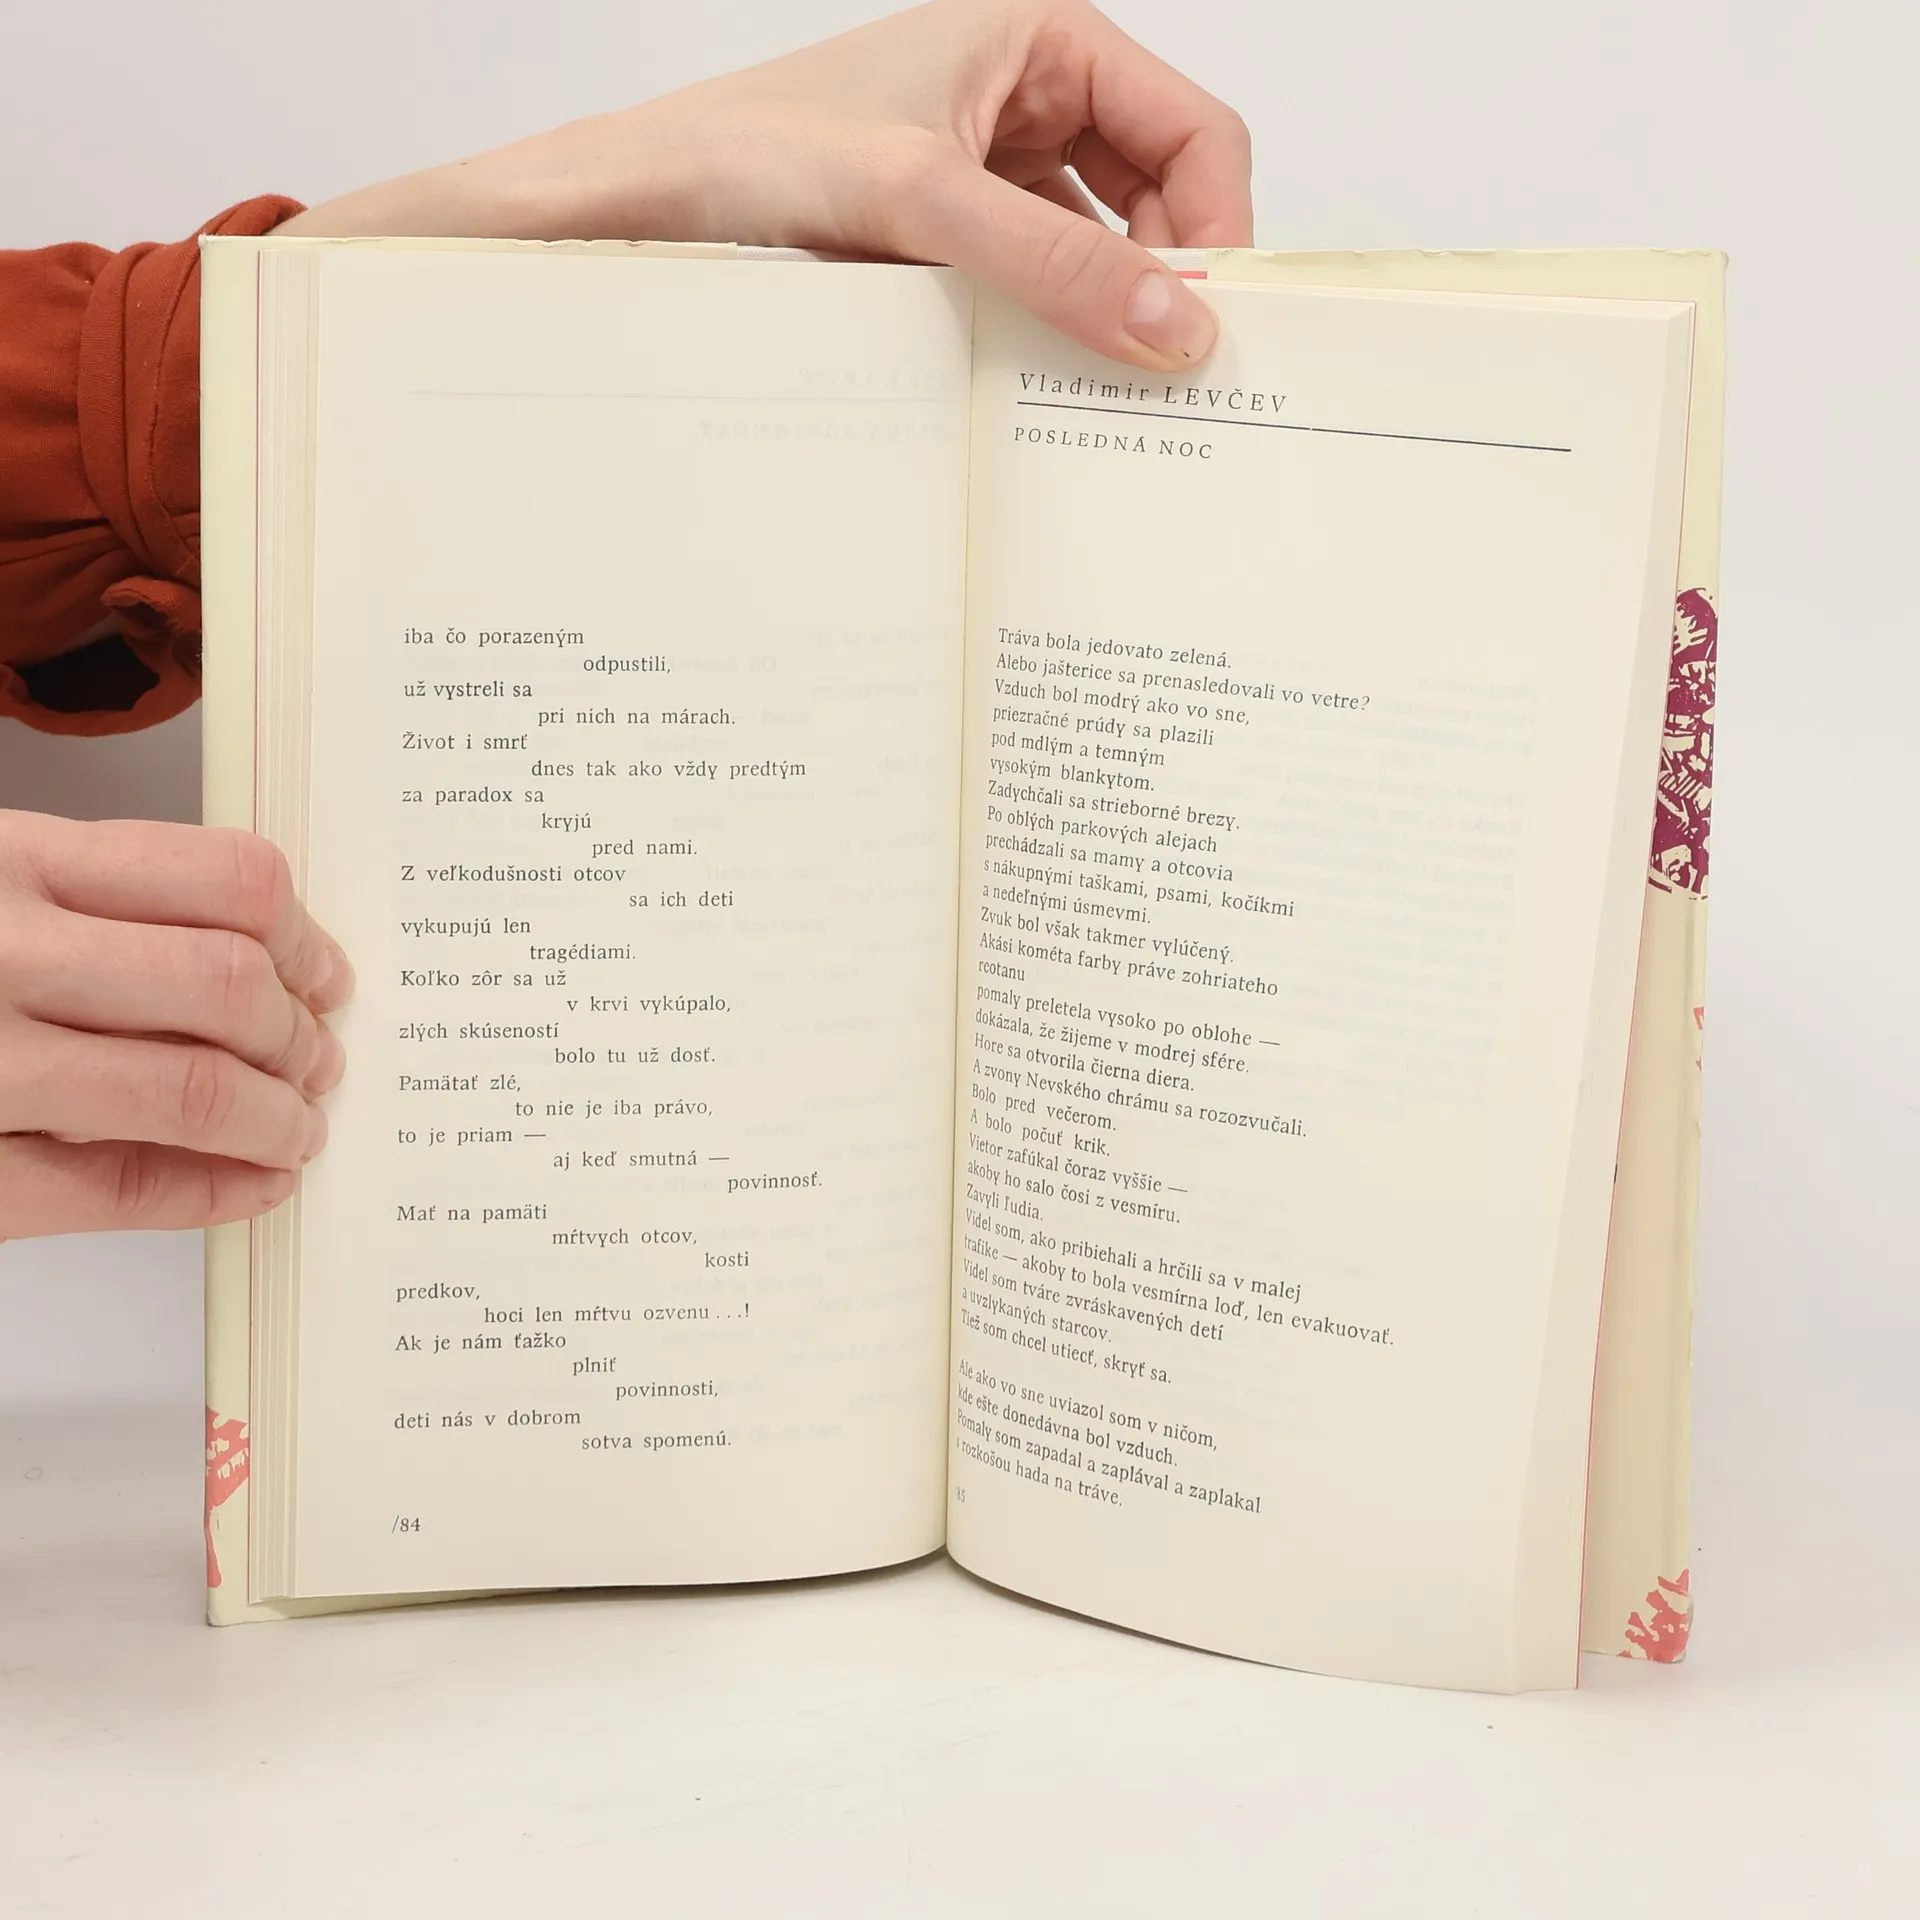 iba čo porazeným
odpustili,
už vystreli sa
pri nich na márach.
Život i smrť
dnes tak ako vždy predtým
za paradox sa
kryjú
pred nami.
Z veľkodušnosti otcov
sa ich deti
vykupujú len
tragédiami.
Koľko zôr sa už
v krvi vykúpalo,
zlých skúseností
bolo tu už dosť.
Pamätať zlé,
to nie je iba právo,
to je priam —
aj keď smutná —
povinnosť.
Mať na pamäti
mŕtvych otcov,
kosti
predkov,
hoci len mŕtvu ozvenu...!
Ak je nám ťažko
plniť
povinnosti,
deti nás v dobrom
sotva spomenú.
/84
Vladimir LEVČEV
POSLEDNÁ NOC
Tráva bola jedovato zelená.
Alebo jašterice sa prenasledovali vo vetre?
Vzduch bol modrý ako vo sne,
priezračné prúdy sa plazili
pod mdlým a temným
vysokým blankytom.
Zadychčali sa strieborné brezy.
Po oblých parkových alejach
prechádzali sa mamy a otcovia
s nákupnými taškami, psami, kočíkmi
a nedeľnými úsmevmi.
Zvuk bol však takmer vylúčený.
Akási kométa farby práve zohriateho
reotanu
pomaly preletela vysoko po oblohe —
dokázala, že žijeme v modrej sfére.
Hore sa otvorila čierna diera.
A zvony Nevského chrámu sa rozozvučali.
Bolo pred večerom.
A bolo počuť krik.
Vietor zafúkal čoraz vyššie —
akoby ho salo čosi z vesmíru.
Zavyli ľudia.
Videl som, ako pribiehali a hrčili sa v malej
trafike — akoby to bola vesmírna loď, len evakuovať.
Videl som tváre zvráskavených detí
a uvzlykaných starcov.
Tiež som chcel utiecť, skryť sa.
Ale ako vo sne uviazol som v ničom,
kde ešte donedávna bol vzduch.
Pomaly som zapadal a zaplával a zaplakal
s rozkošou hada na tráve.
85